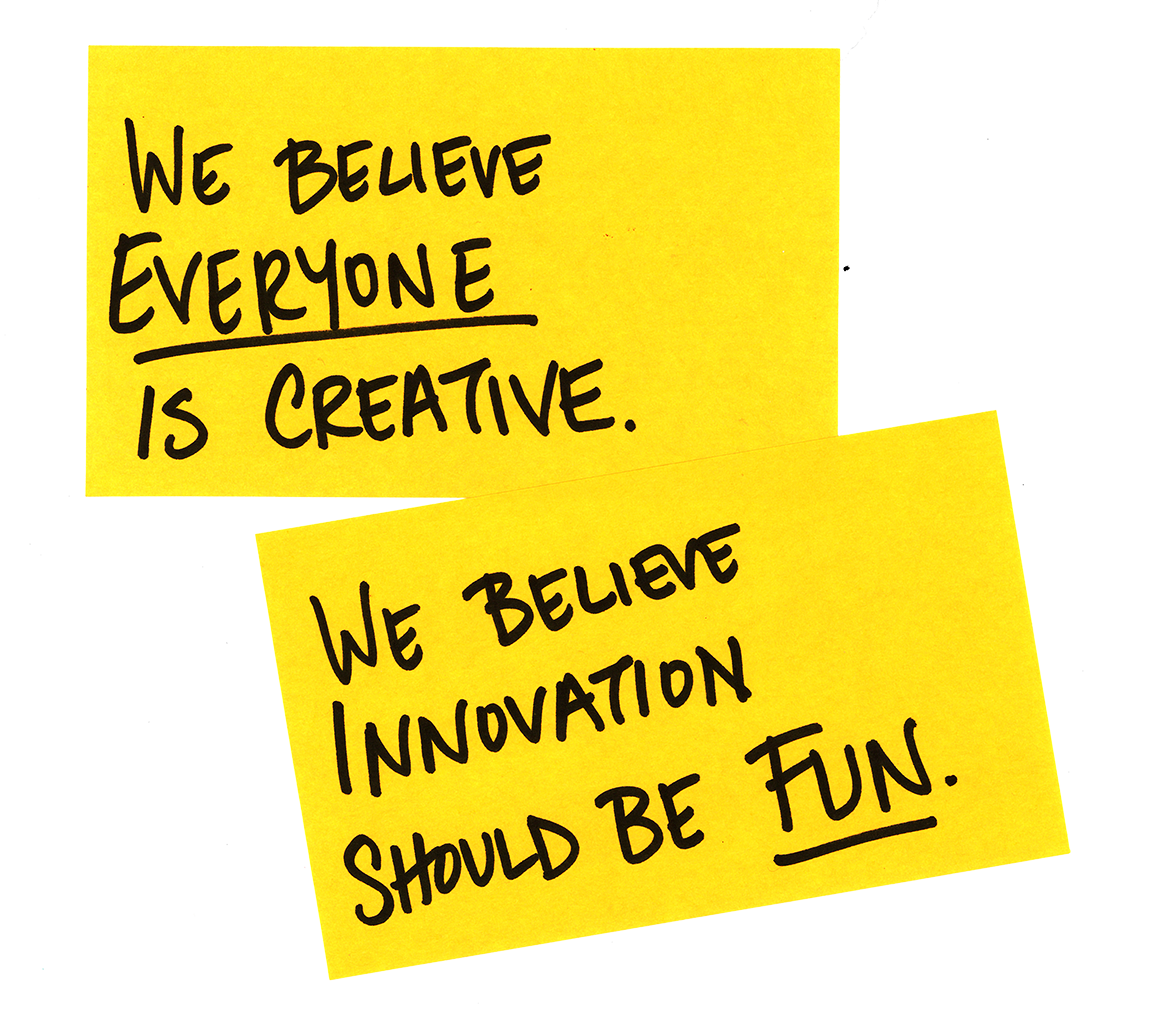 WE BELIEVE
EVERYONE
IS CREATIVE.
WE BELIEVE
INNOVATION
SHOULD BE FUN.